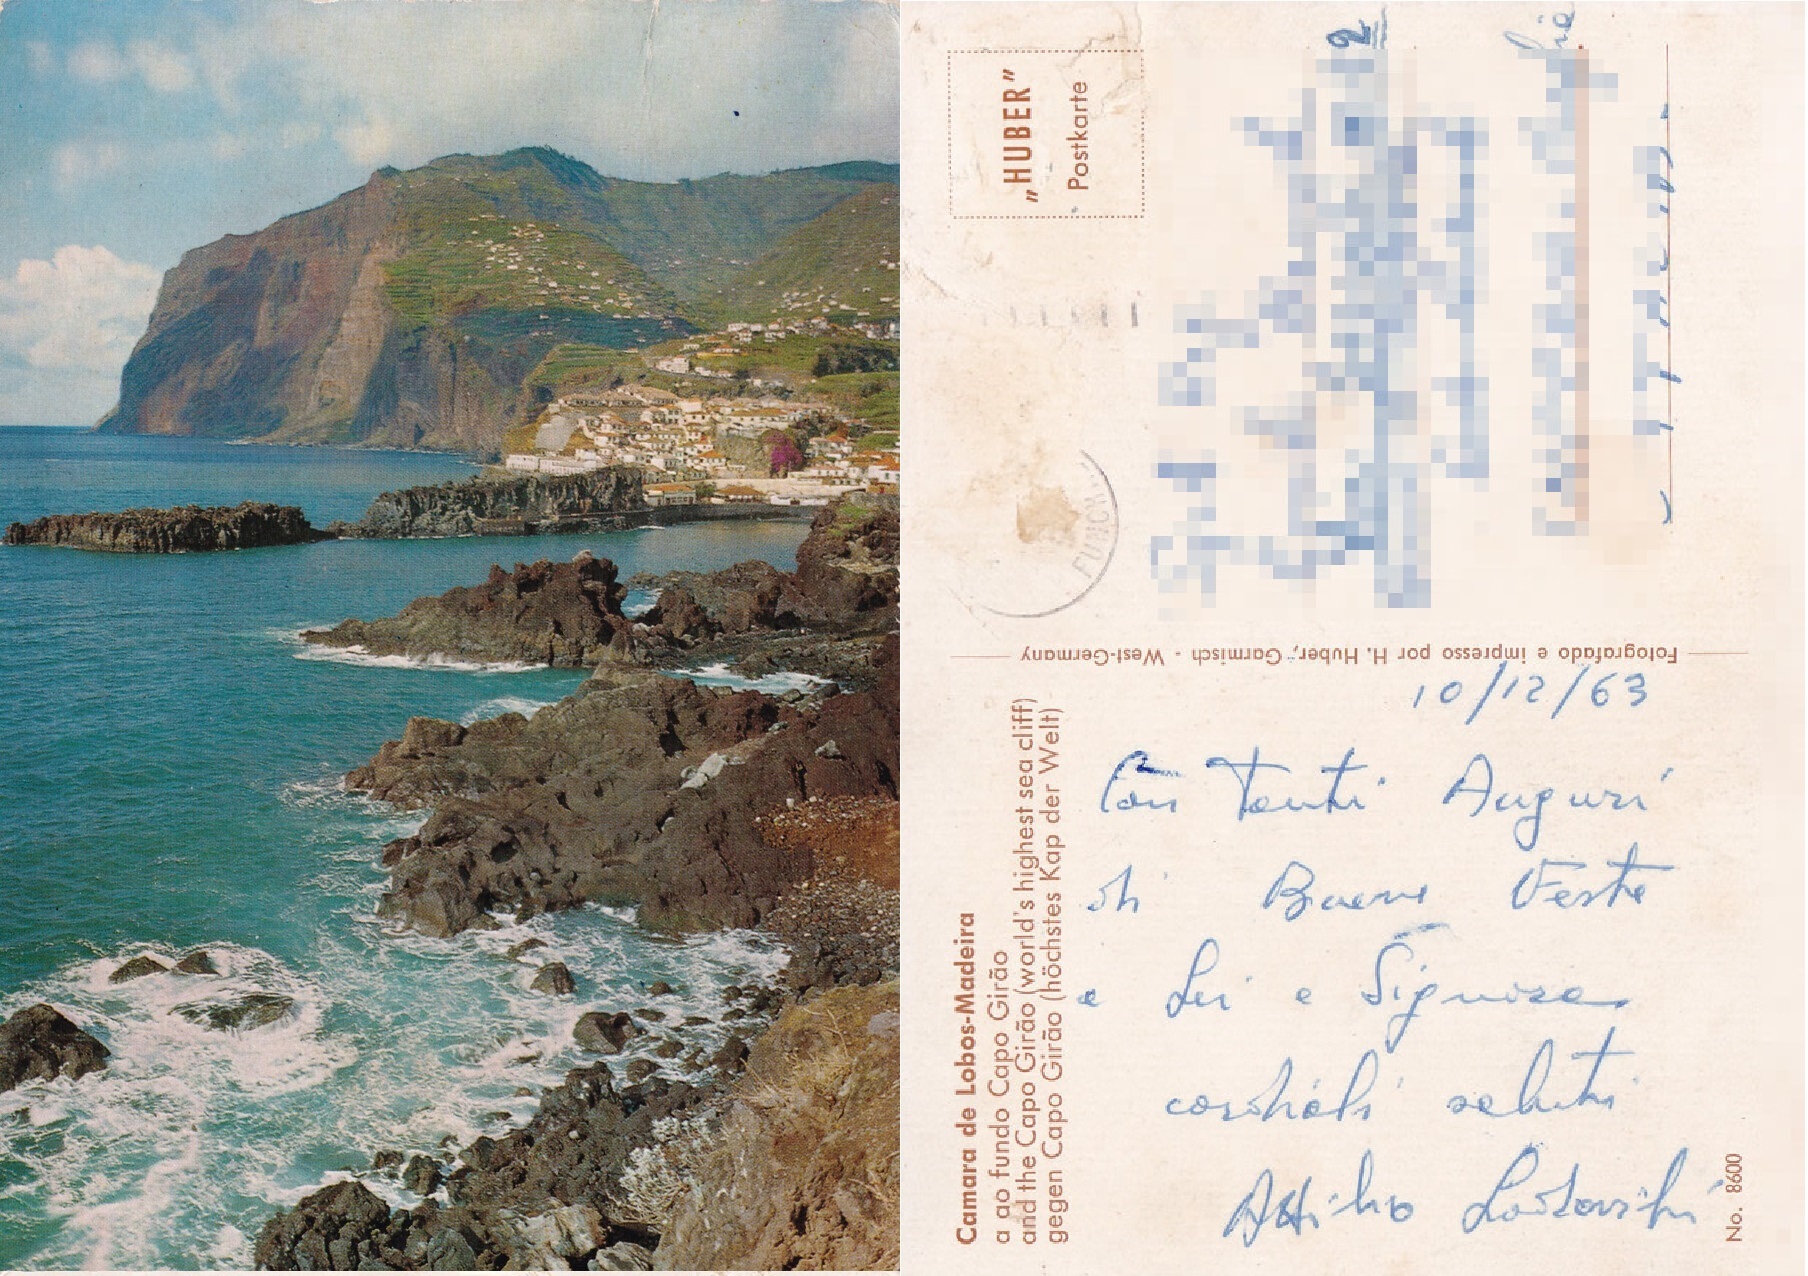 „HUBER”
Postkarte
FUNCH
Fotografado e impresso por H. Huber, Garmisch - West-Germany
Camara de Lobos-Madeira
a ao fundo Capo Girão
and the Capo Girão (world's highest sea cliff)
gegen Capo Girão (höchstes Kap der Welt)
10/12/63
Con Tanti Auguri
di Buone Feste
a Lei e Signora
cordiali saluti
Attilio
No. 8600